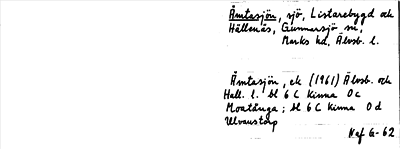 Åmtasjön, sjö, Listarebygd och
Hällenäs, Gunnarsjö sn,
Marks hd, Älvsb. l.
Åmtasjön, ek (1961) Älvsb. och
Hall. l. bl 6 C Kinna 0 c
Moatånga; bl 6 C Kinna 0 d
Ulvanstorp
Naf G-62